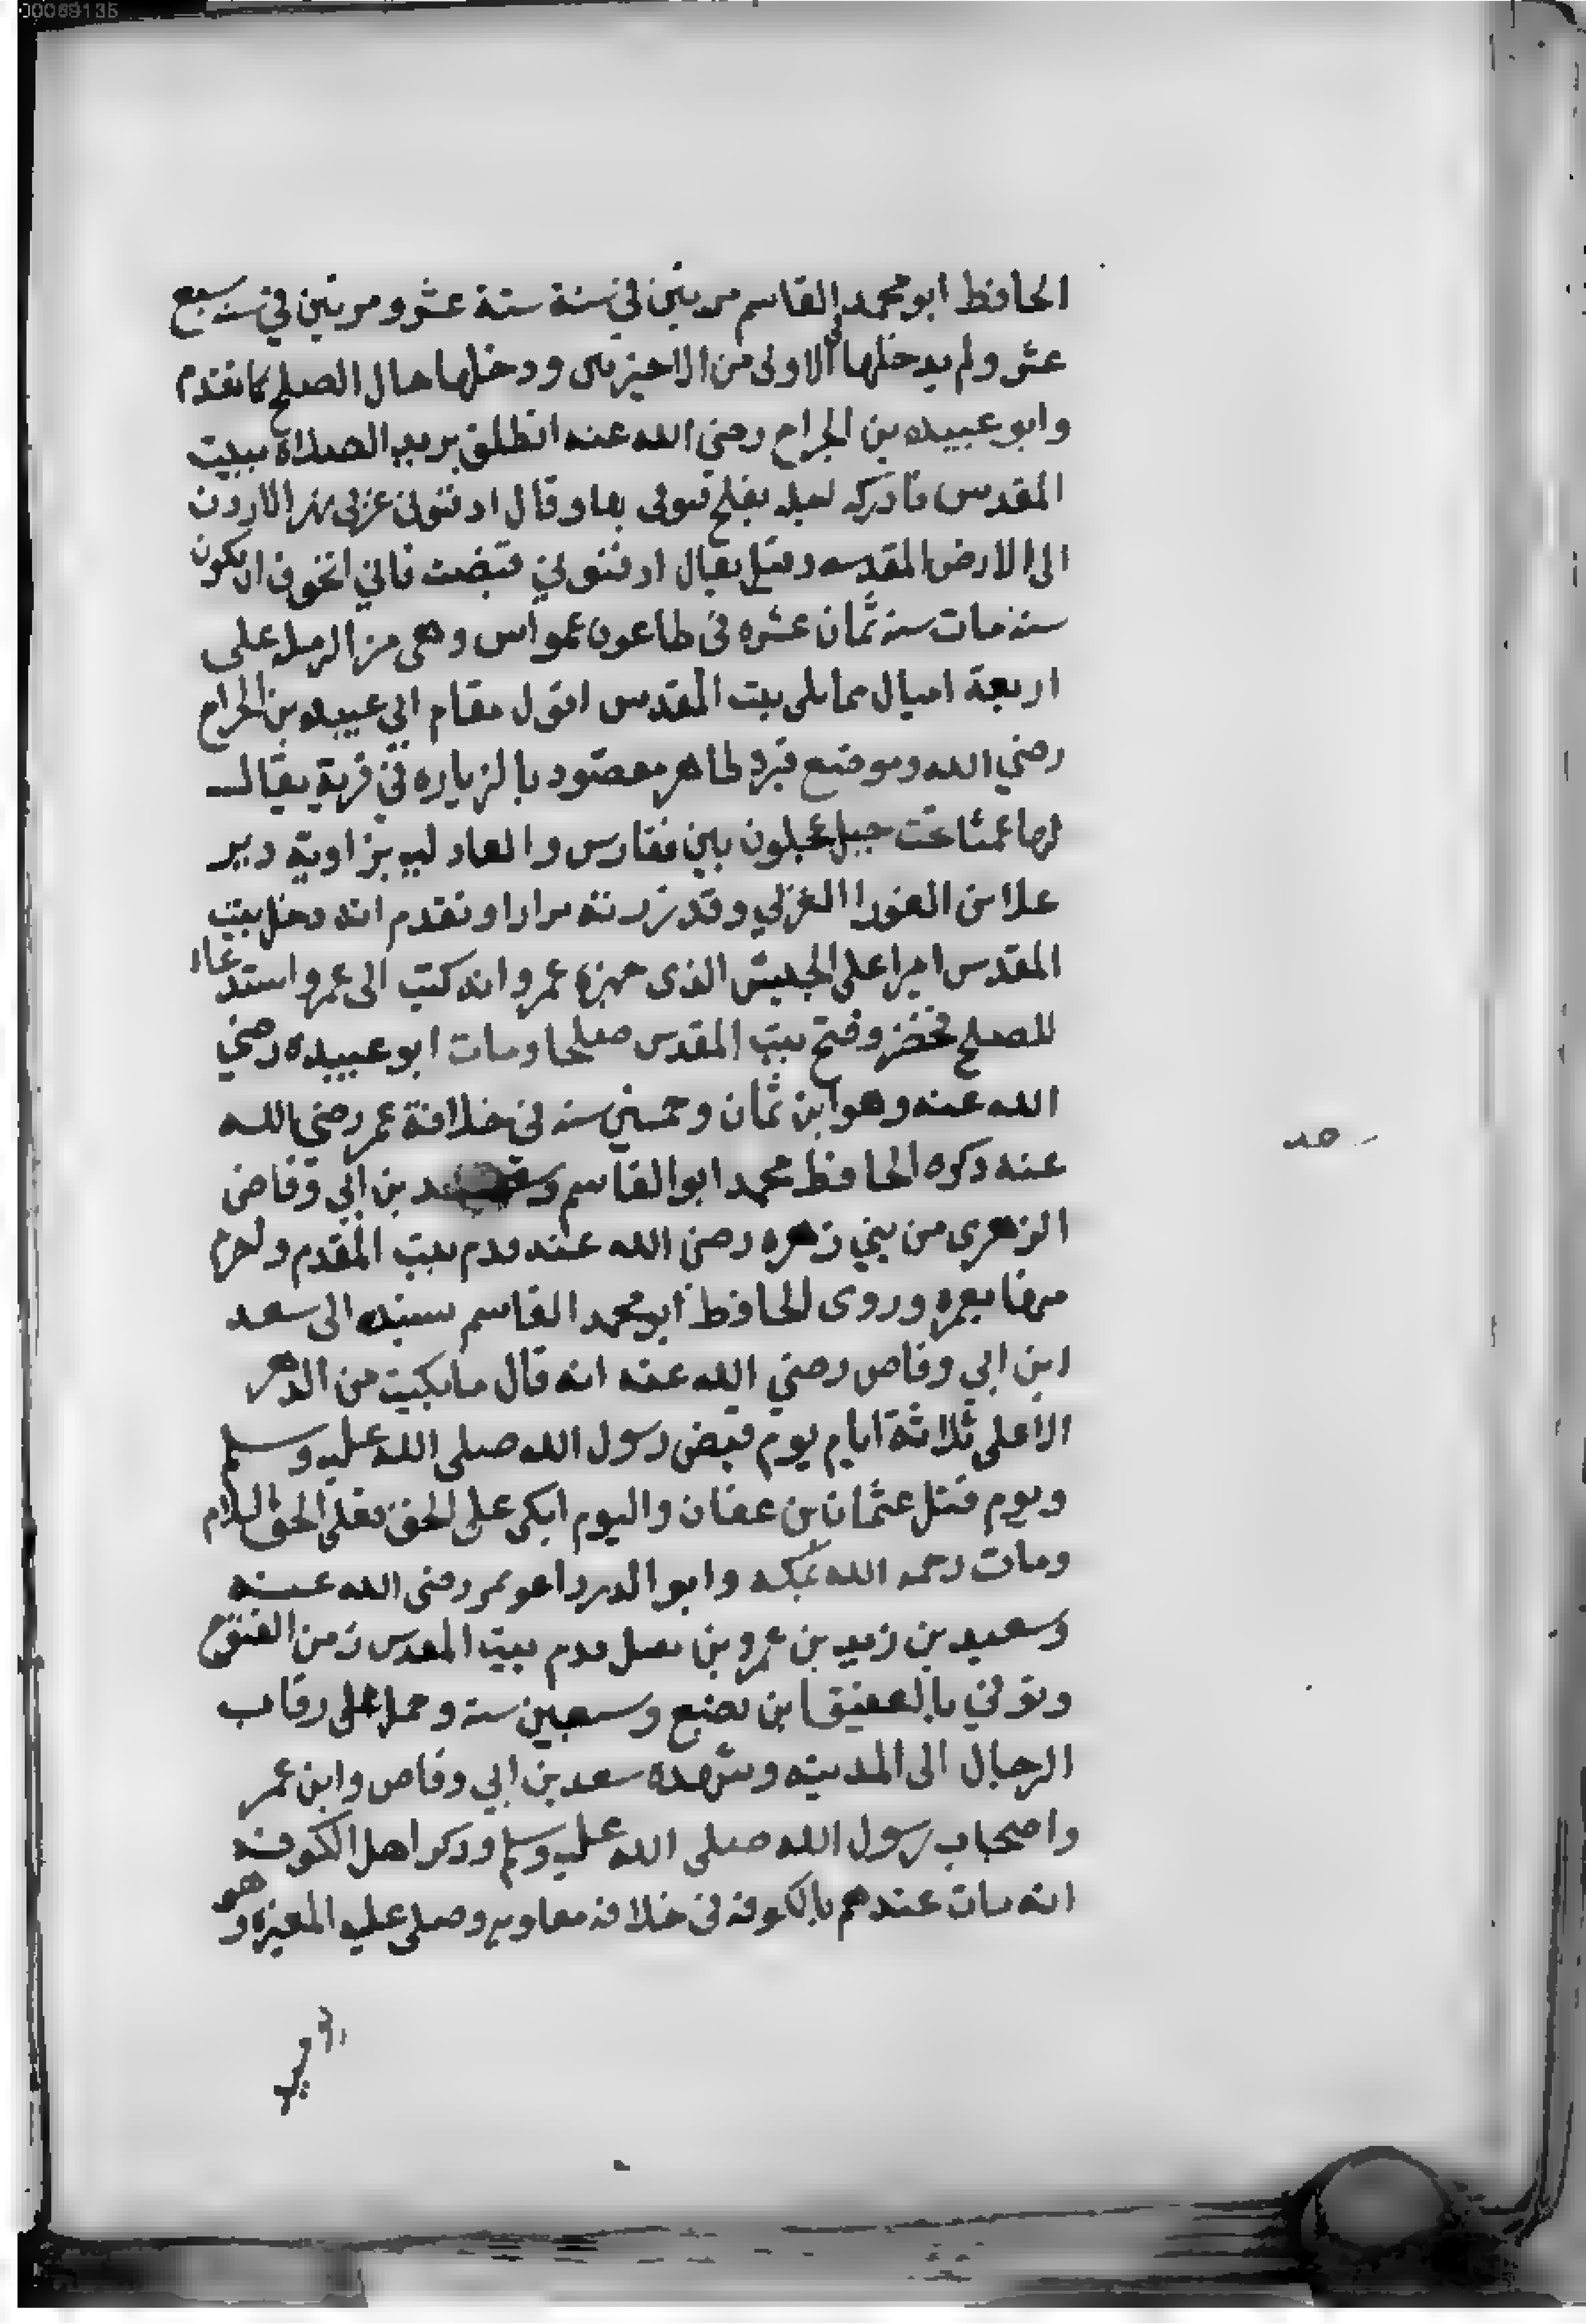 00069135
الحافظ ابو محمد القاسم مرتين في سنة ستة عشر ومرتين في سنة سبع
عشر ولم يدخلها في الاولى من الاخيرتين ودخلها حال الصلح كما تقدم
وابو عبيده بن الجراح رضي الله عنه انطلق يريد الصلاة ببيت
المقدس فادركه اجله بفحل فتوفى بها وقال ادفنوني غربي نهر الاردن
الى الارض المقدسه وقيل بقال ادفنوني قبضت فاني اتخوف ان تكون
سنه مات سنه ثمان عشره فى طاعون عمواس وهى من الرمله على
اربعة اميال مما يلى بيت المقدس اقول مقام ابي عبيده بن الجراح
رضي الله وموضع قبره ظاهر مقصود بالزياره في قرية يقال
لها عمتا تحت جبل عجلون بين فقارس والعادليه بزاوية دير
علا من الغور الغربي وقد زرته مرارا وتقدم انه دخل بيت
المقدس اميرا على الجيش الذى جهزه عمر وانه كتب الى عمر واستدعاه
للصلح فحضر وفتح بيت المقدس صلحا ومات ابو عبيده رضي
الله عنه وهو ابن ثمان وخمسين سنه في خلافة عمر رضي الله
عنه ذكره الحافظ محمد ابو القاسم وسعد بن ابي وقاص
الزهرى من بني زهره رضى الله عنه قدم بيت المقدم واحرم
منها بعمره وروى الحافظ ابو محمد القاسم بسنده الى سعد
ابن ابي وقاص رضي الله عنه انه قال ما بكيت من الدهر
الا على ثلاثة ايام يوم قبض رسول الله صلى الله عليه وسلم
ويوم قتل عثمان بن عفان واليوم ابكى على الحق فعلى الحق السلام
ومات رحمه الله بمكه وابو الدردا عويمر رضى الله عنه
وسعيد بن زيد بن عمرو بن نفيل قدم بيت المقدس زمن الفتوح
وتوفي بالعقيق ابن بضع وسبعين سنة وحمل على رقاب
الرجال الى المدينه وشهده سعد بن ابي وقاص وابن عمر
واصحاب رسول الله صلى الله عليه وسلم وذكر اهل الكوفه
انه مات عندهم بالكوفه فى خلافه معاويه وصلى عليه المغيره وهو